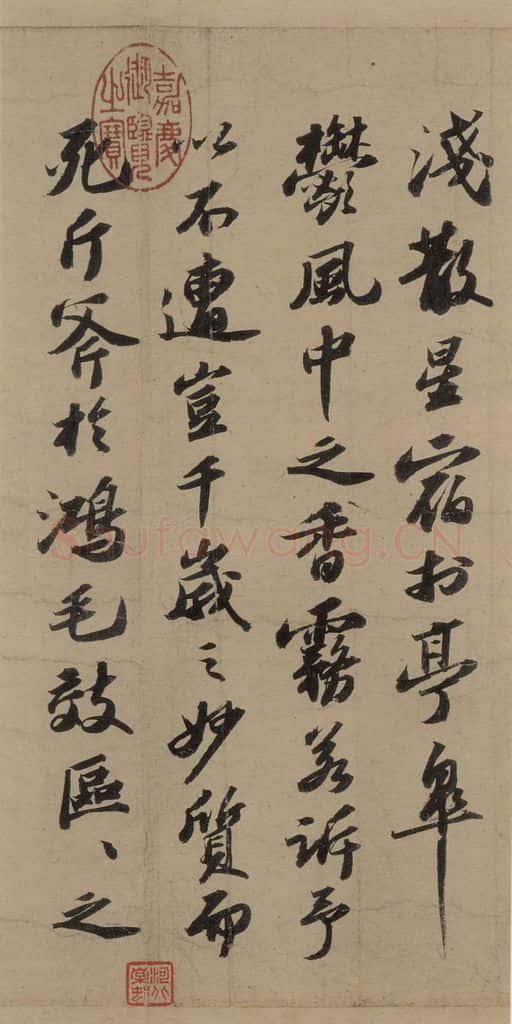 淺散星宿於亭皋
鬱風中之香霧若訴予
以不遭豈千歲之妙質而
死斤斧於鴻毛效區、之
嘉慶御覽之寶
Shufawang.CN